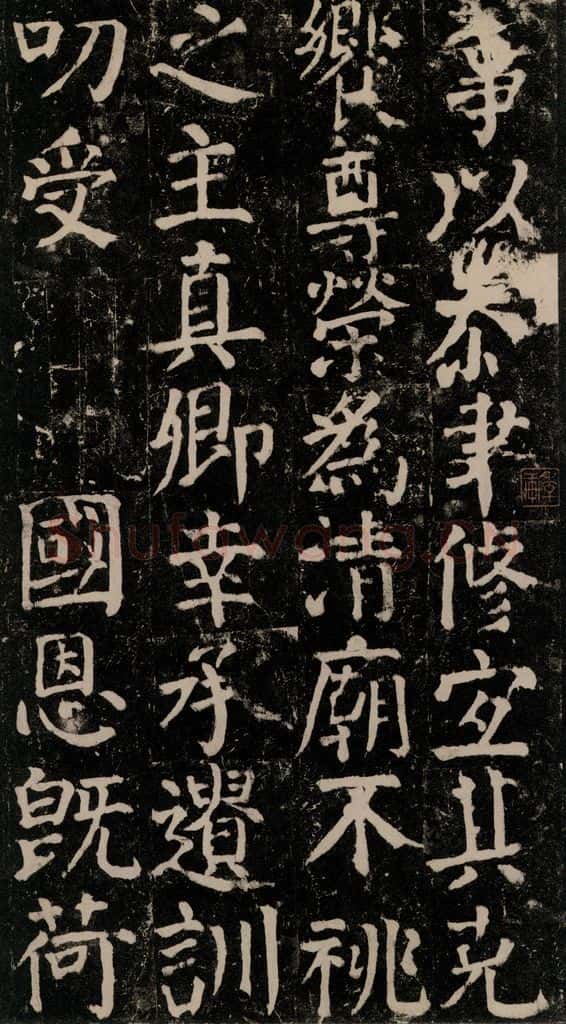 事以恭聿修宜其克
饗尊榮為清廟不祧
之主真卿幸承遺訓
叨受國恩既荷
Shufawang.cn